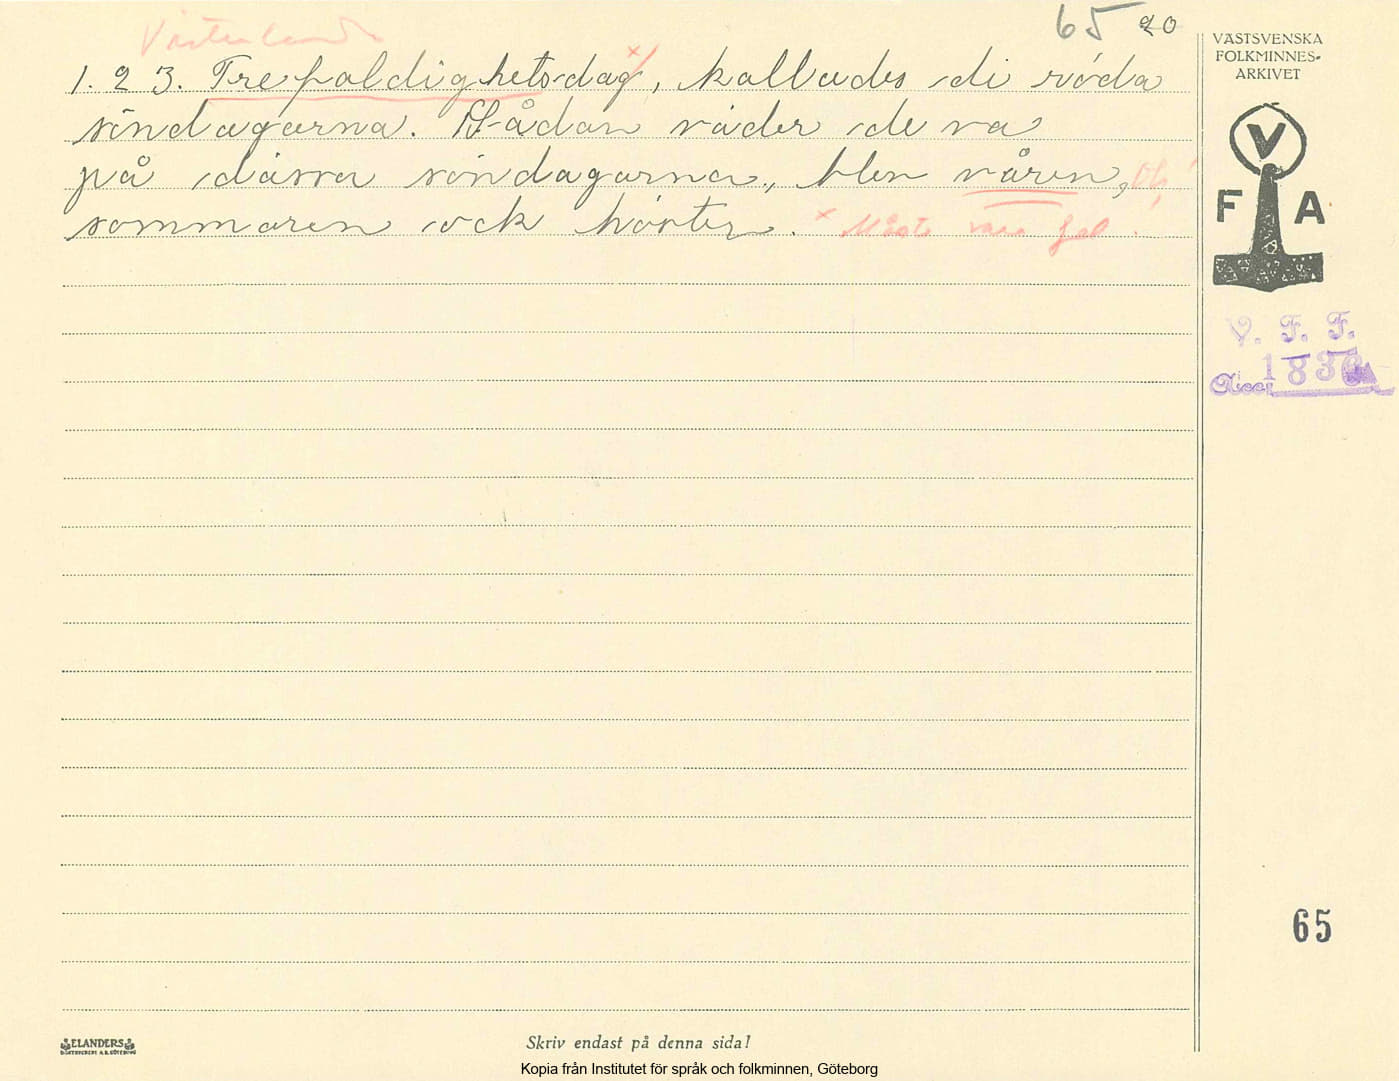 65 20
Västerland
1. 2 3. Trefaldighetsdag x/, kallades di röda
söndagarna. Sådan väder de va
på dässa söndagarna, blev våren,
sommaren ock höster. x Måste vara fel.
VÄSTSVENSKA
FOLKMINNES-
ARKIVET
V
F A
V. F. F.
Acc. 1836
65
ELANDERS
BOKTRYCKERI A.B. GÖTEBORG
Skriv endast på denna sida!
Kopia från Institutet för språk och folkminnen, Göteborg